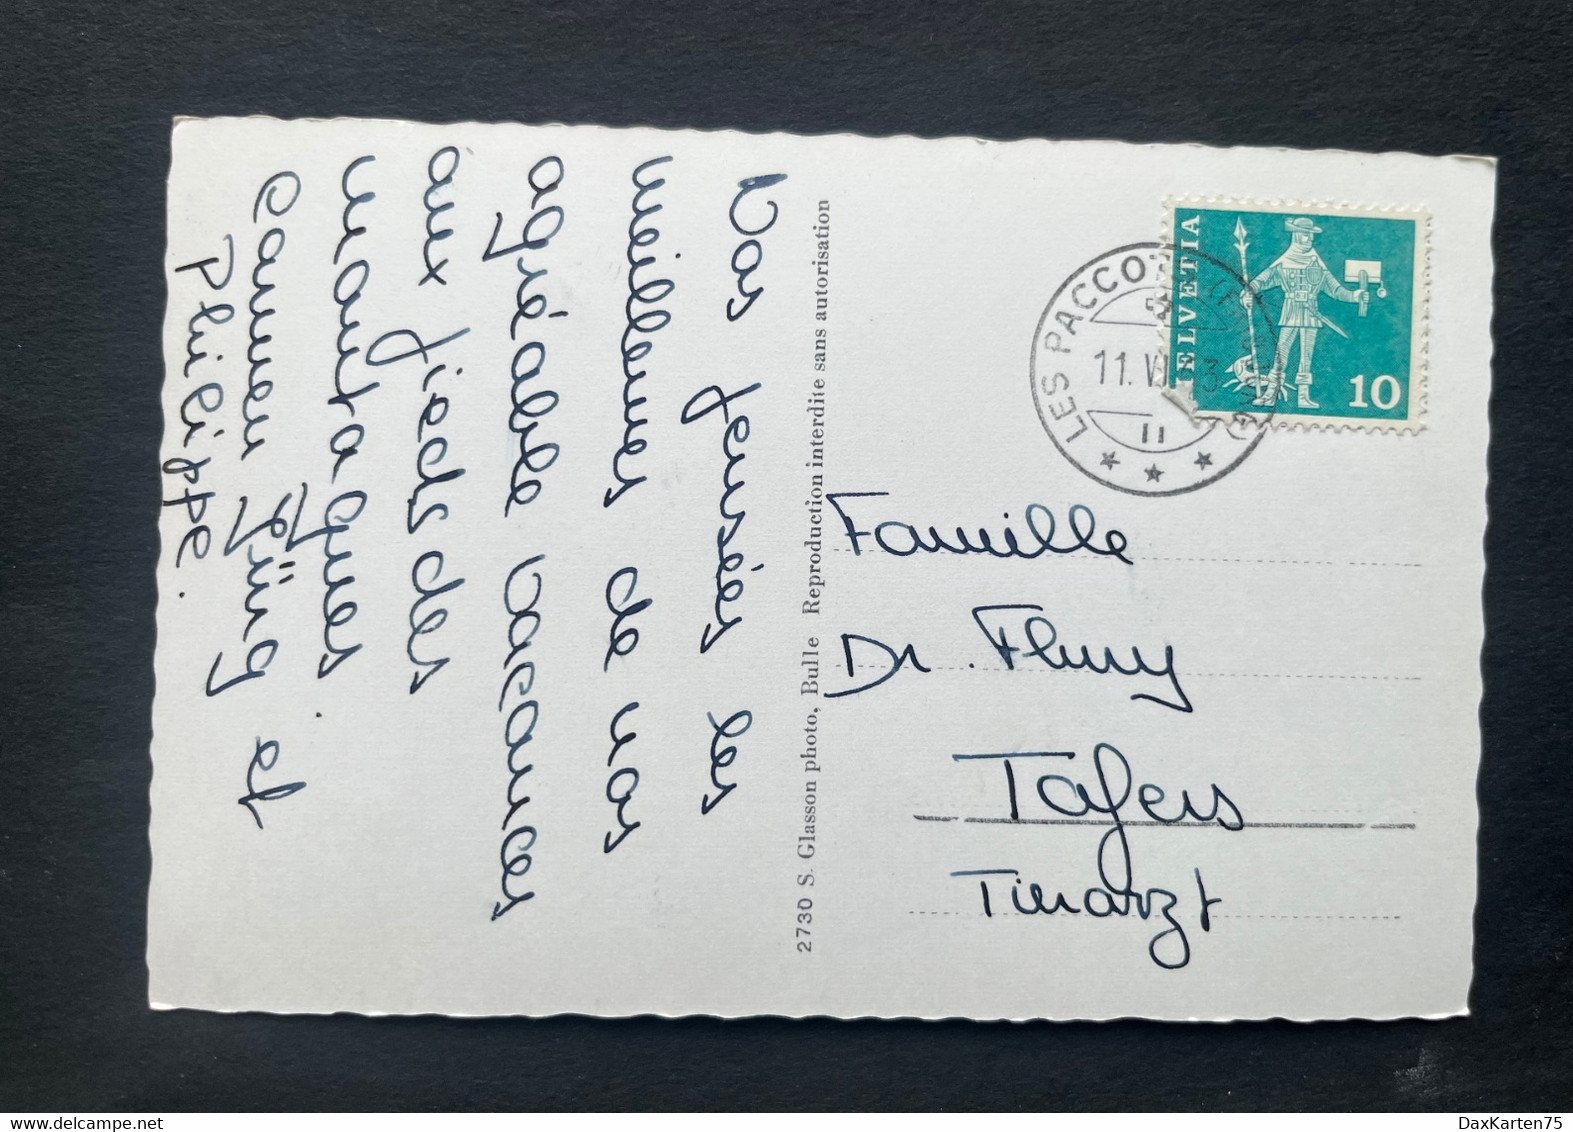 Vos pensées les
meilleures de nos
agréable vacances
aux pieds des
montagnes
Carmen et
Philippe.
2730 S. Glasson photo, Bulle Reproduction interdite sans autorisation
HELVETIA
10
LES PACCOTS
11. VI
11
Famille
Dr. Flury
Tafers
Tierarzt
DaxKarten75